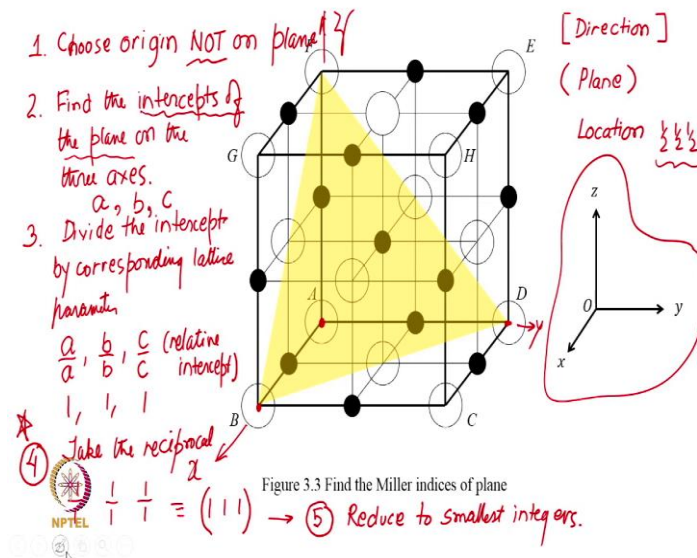 1. Choose origin NOT on plane
2. Find the intercepts of
the plane on the
three axes.
a, b, c
3. Divide the intercept
by corresponding lattice
parameter
a/a, b/b, c/c (relative
intercept)
1, 1, 1
4 Take the reciprocal
1/1 1/1 1/1 ≡ (111) → 5 Reduce to smallest integers.
E
G
H
A
D
B
C
y
x
[Direction]
(Plane)
Location ½ ½ ½
z
O
y
x
Figure 3.3 Find the Miller indices of plane
NPTEL